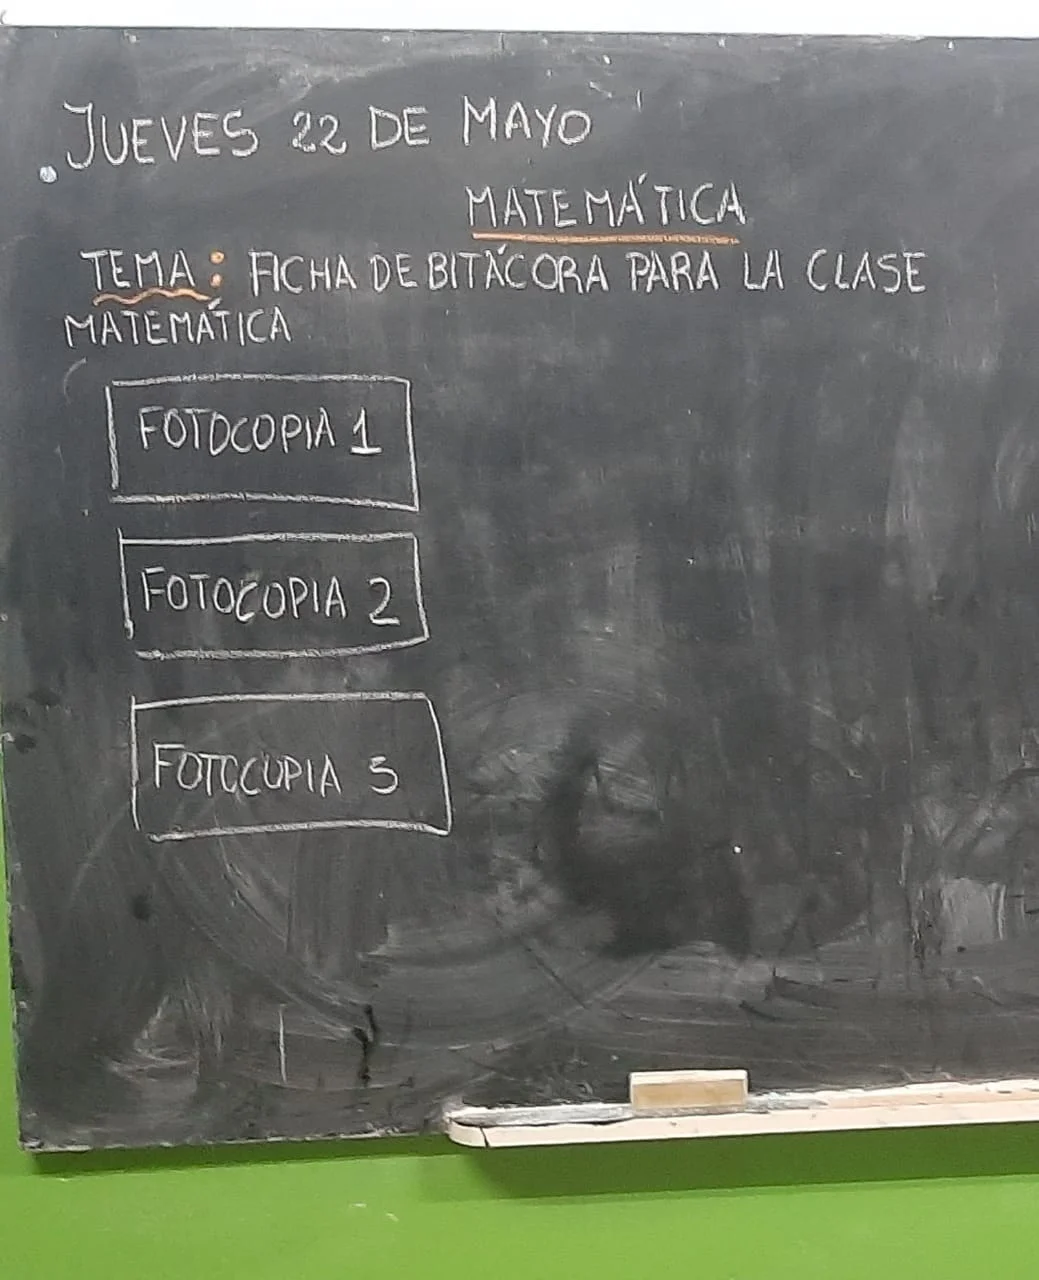 JUEVES 22 DE MAYO
MATEMÁTICA
TEMA: FICHA DE BITÁCORA PARA LA CLASE
MATEMÁTICA
FOTOCOPIA 1
FOTOCOPIA 2
FOTOCOPIA 3